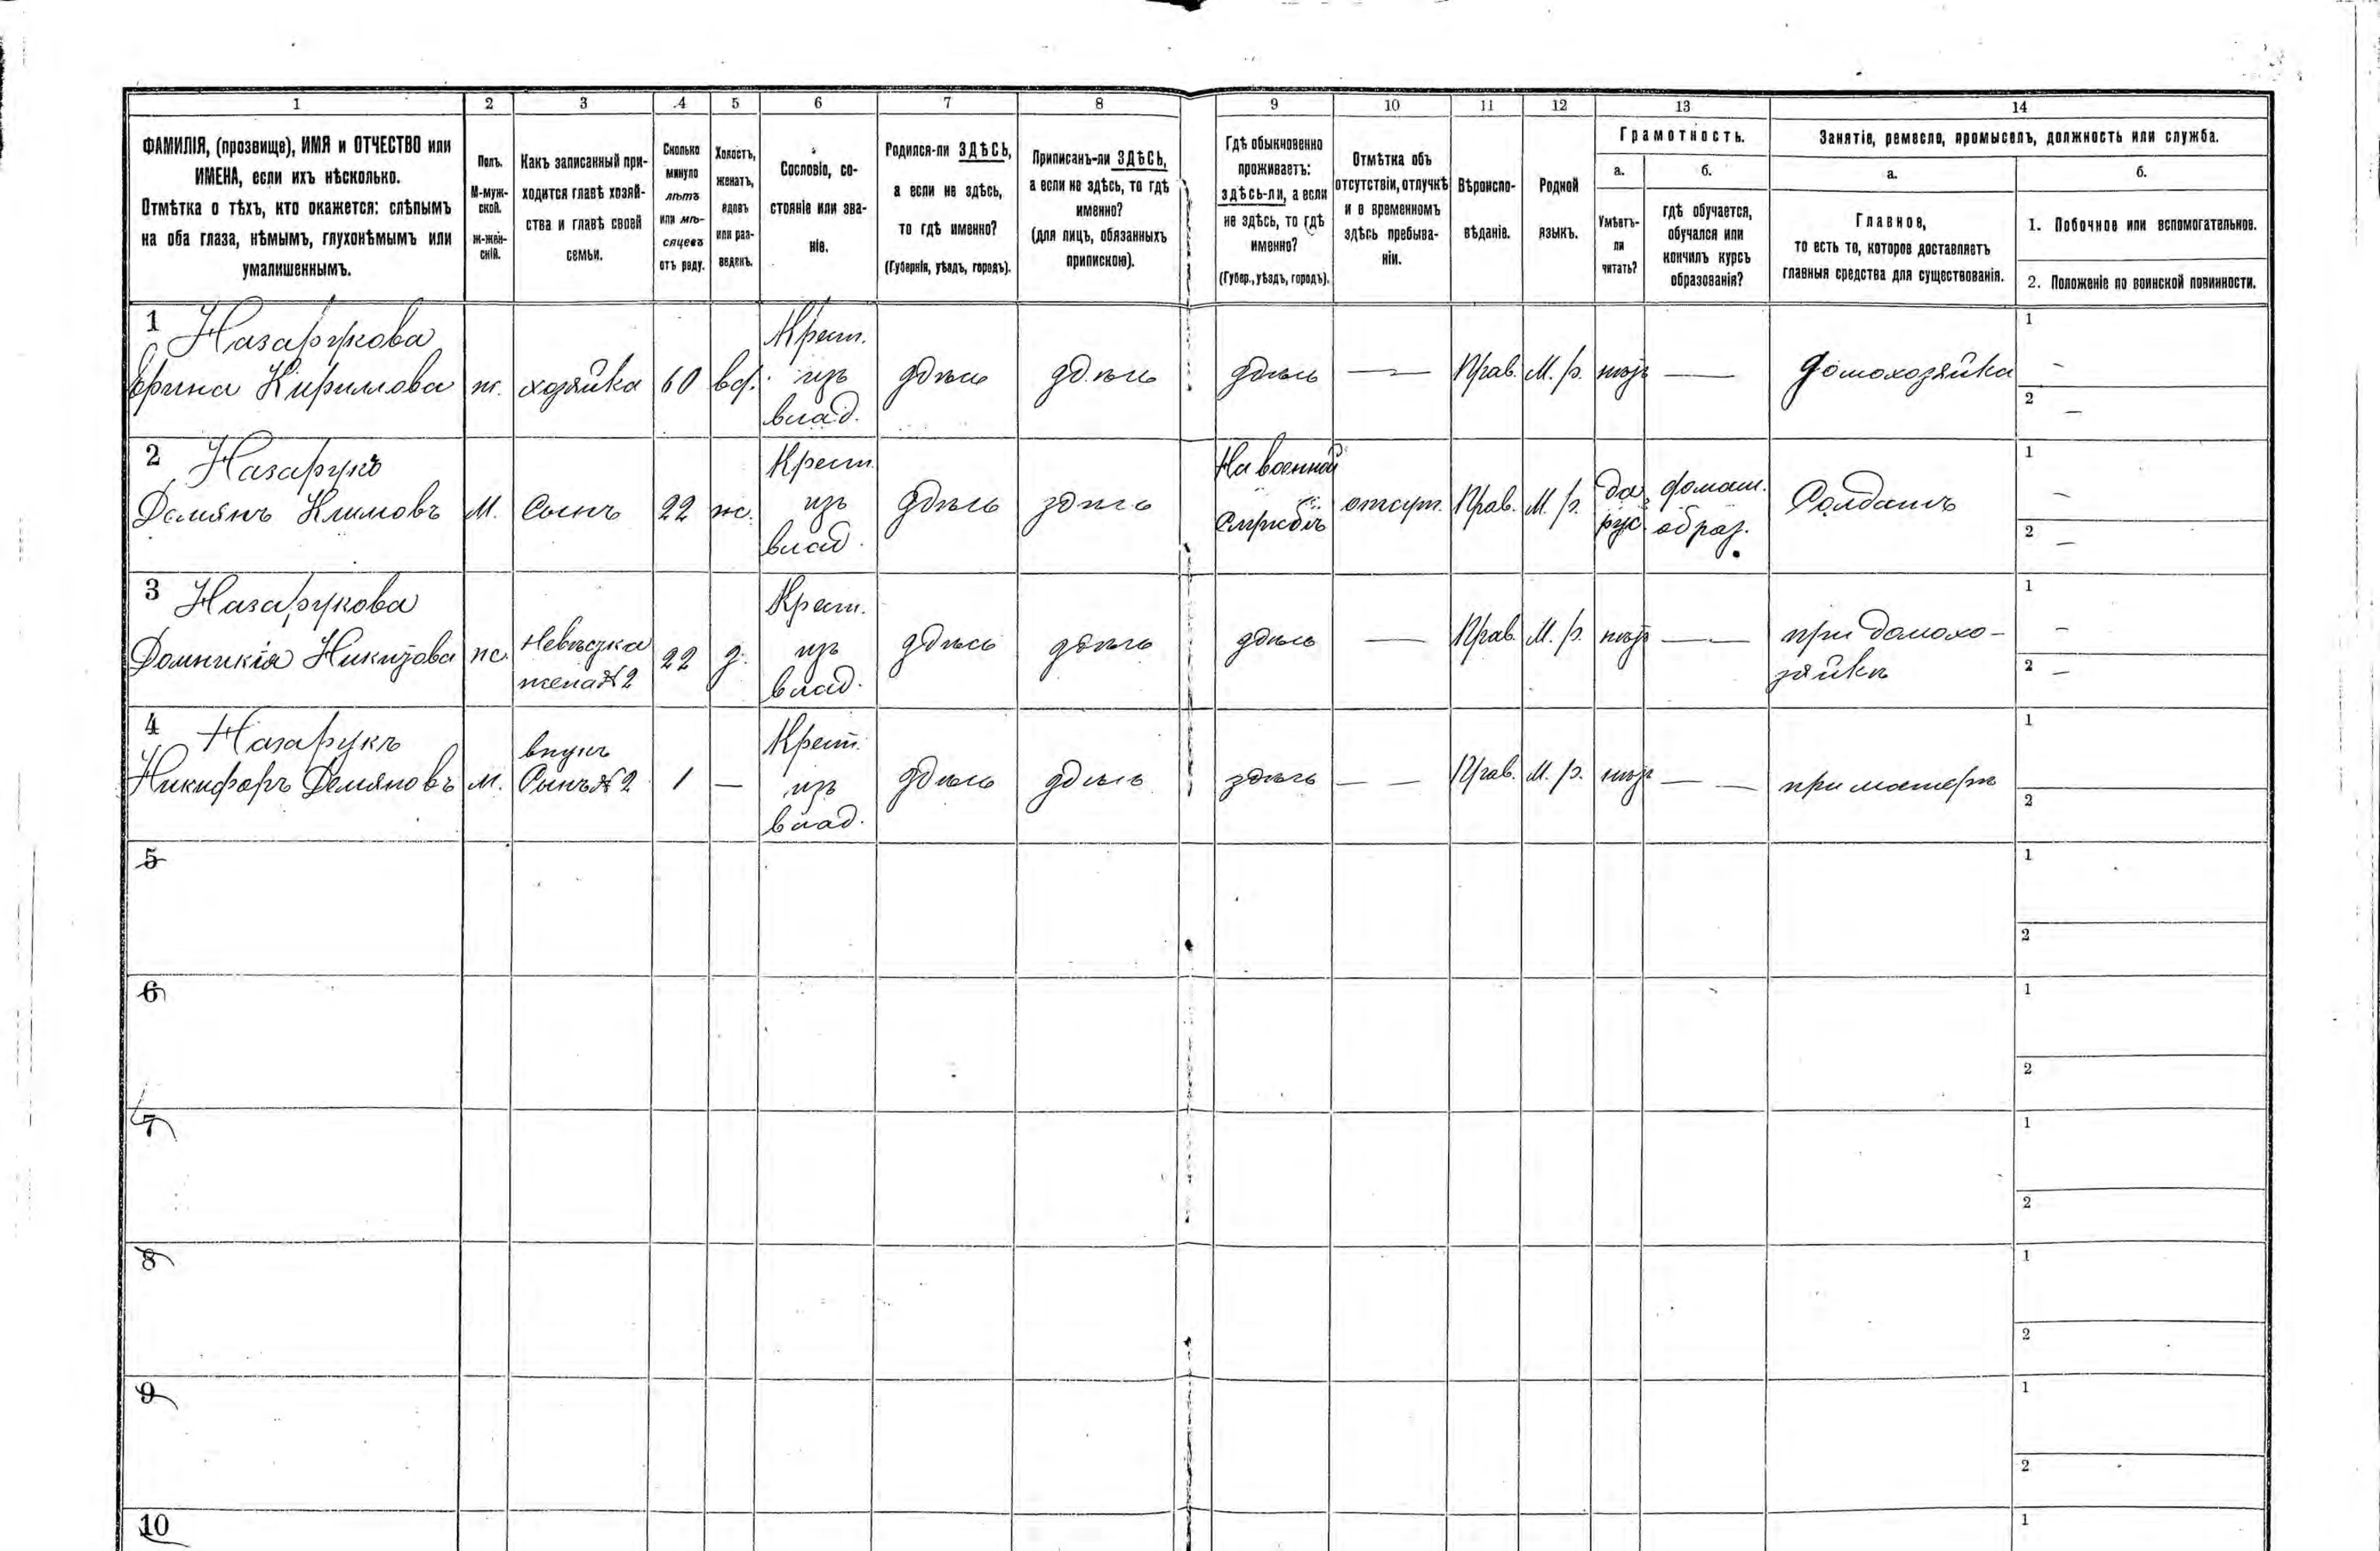 1 2 3 4 5 6 7 8 9 10 11 12 13 14
ФАМИЛІЯ, (прозвище), ИМЯ и ОТЧЕСТВО или
ИМЕНА, если ихъ нѣсколько.
Отмѣтка о тѣхъ, кто окажется: слѣпымъ
на оба глаза, нѣмымъ, глухонѣмымъ или
умалишеннымъ.
Полъ.
М-муж-
ской.
Ж-жен-
скій.
Какъ записанный при-
ходится главѣ хозяй-
ства и главѣ своей
семьи.
Сколько
минуло
лѣтъ
или мѣ-
сяцевъ
отъ роду.
Холостъ,
женатъ,
вдовъ
или раз-
веденъ.
Сословіе, со-
стояніе или зва-
ніе.
Родился-ли ЗДѢСЬ,
а если не здѣсь,
то гдѣ именно?
(Губернія, уѣздъ, городъ).
Приписанъ-ли ЗДѢСЬ,
а если не здѣсь, то гдѣ
именно?
(для лицъ, обязанныхъ
припискою).
Гдѣ обыкновенно
проживаетъ:
здѣсь-ли, а если
не здѣсь, то гдѣ
именно?
(Губер., уѣздъ, городъ).
Отмѣтка объ
отсутствіи, отлучкѣ
и о временномъ
здѣсь пребыва-
ніи.
Вѣроиспо-
вѣданіе.
Родной
языкъ.
Грамотность.
а.
Умѣетъ-
ли
читать?
б.
гдѣ обучается,
обучался или
кончилъ курсъ
образованія?
Занятіе, ремесло, промыселъ, должность или служба.
а.
Главное,
то есть то, которое доставляетъ
главныя средства для существованія.
б.
1. Побочное или вспомогательное.
2. Положеніе по воинской повинности.
1 Назарукова
Ирина Киримова
ж.
хозяйка
60
вд.
Крест.
изъ
влад.
здѣсь
здѣсь
здѣсь
—
Прав.
М. р.
нѣтъ
—
домохозяйка
1 —
2 —
2 Назарукъ
Демянъ Климовъ
М.
Сынъ
22
ж.
Крест.
изъ
влад.
здѣсь
здѣсь
На военной
отсут.
Прав.
М. р.
да
рус.
домаш.
образ.
Солдатъ
1 —
2 —
3 Назарукова
Домникія Никитова
ж.
Невѣстка
жена № 2
22
з.
Крест.
изъ
влад.
здѣсь
здѣсь
здѣсь
—
Прав.
М. р.
нѣтъ
—
при домохо-
зяйкѣ
1 —
2 —
4 Назарукъ
Никифоръ Демяновъ
М.
внукъ
Сынъ № 2
1
—
Крест.
изъ
влад.
здѣсь
здѣсь
здѣсь
— —
Прав.
М. р.
нѣтъ
— —
при матери
1
2
5
1
2
6
1
2
7
1
2
8
1
2
9
1
2
10
1